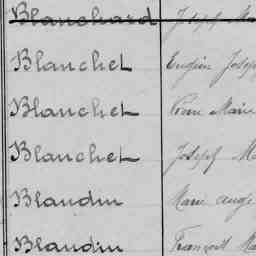 Blanchard Joseph Ma
Blanchet Eugène Josep
Blanchet Marie
Blanchet Joseph M
Blandin Marie Ange
Blandin François Ma